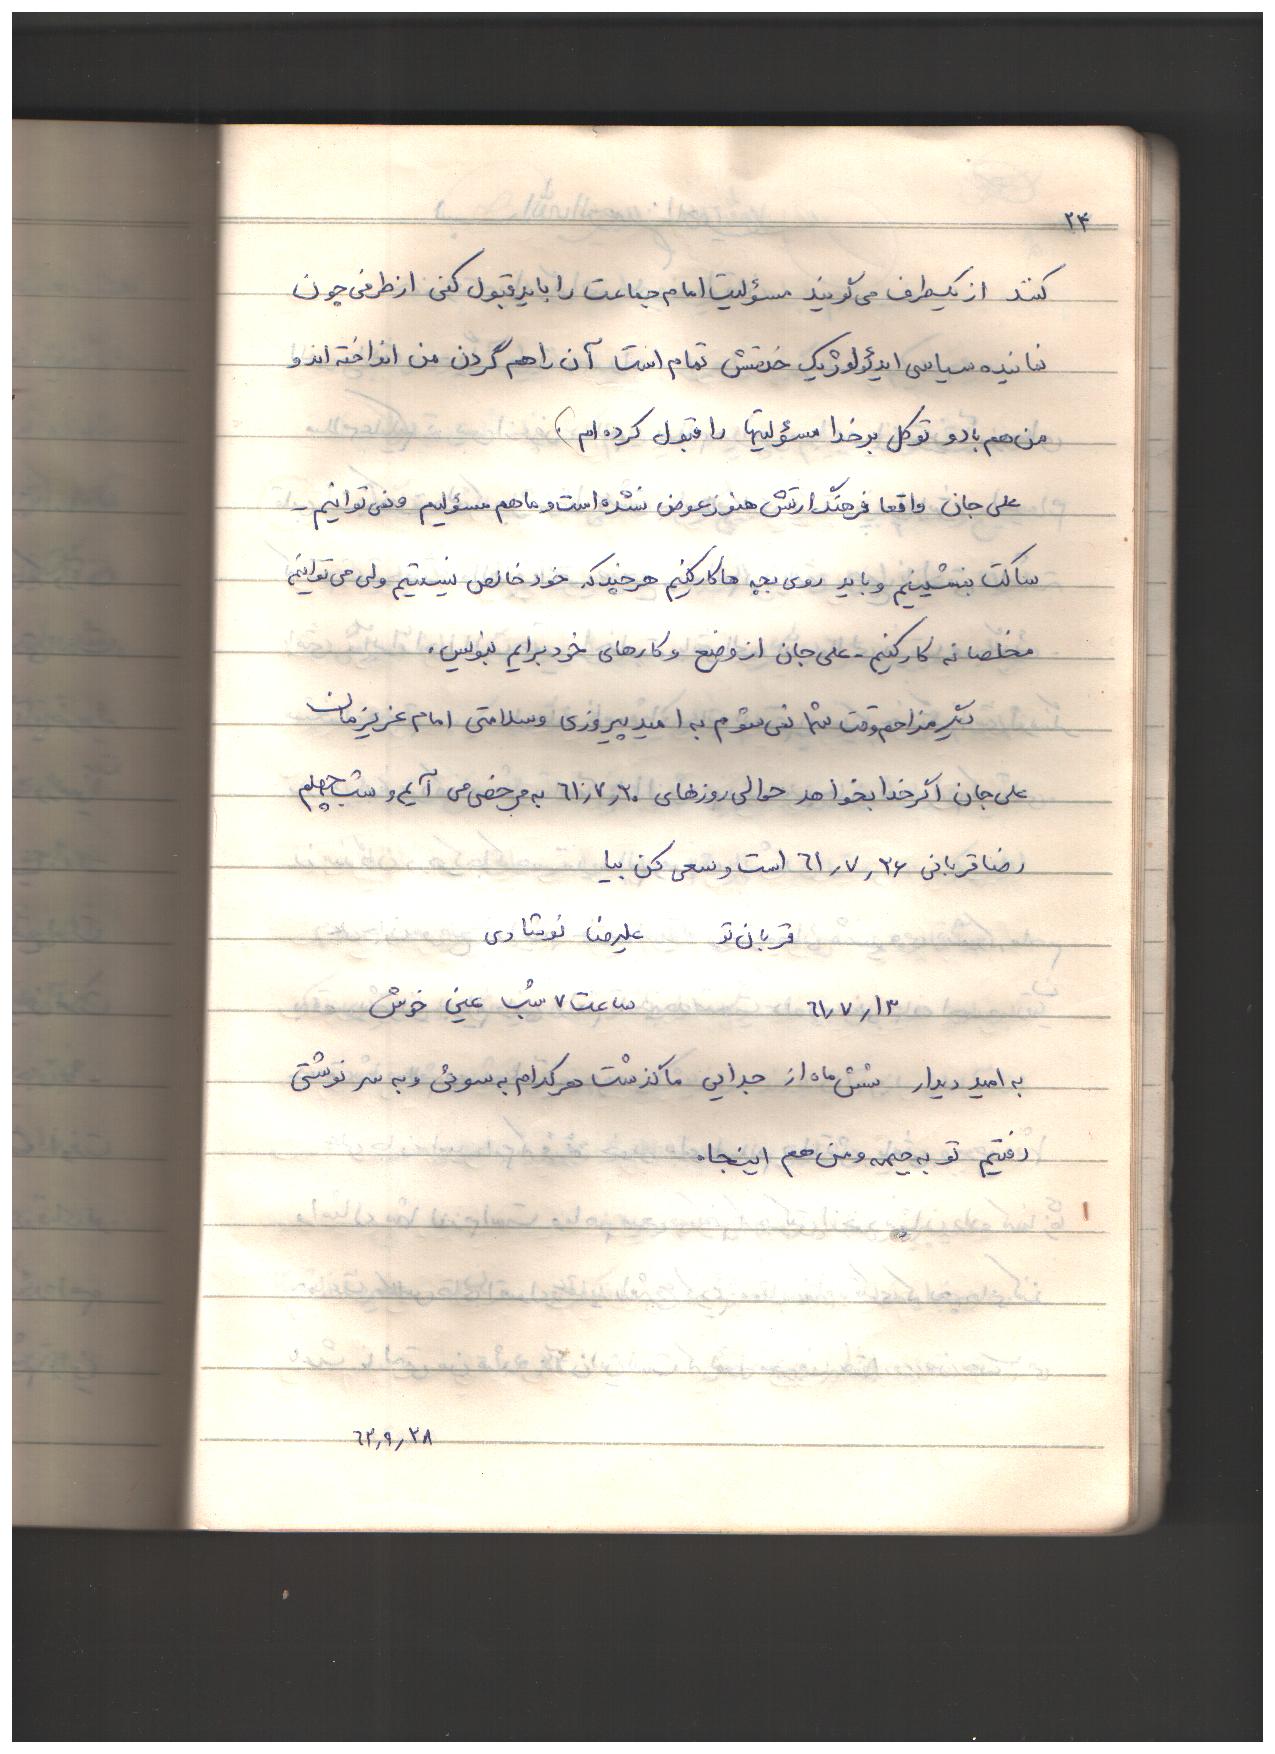 ۲۴
کنند از یکطرف می‌گویند مسؤلیت امام جماعت را باید قبول کنی از طرفی چون
نماینده سیاسی ایدئولوژیک خدمتش تمام است آن را هم گردن من انداخته اند و
من هم با دو توکل بر خدا مسؤلیتها را قبول کرده ام)
علی جان واقعا فرهنگ ارتش هنوز عوض نشده است و ما هم مسؤلیم و نمی توانیم -
ساکت بنشینیم و باید روی بچه ها کار کنیم هر چند که خود خالص نیستیم ولی می توانیم
مخلصانه کار کنیم - علی جان از وضع و کارهای خود برایم بنویس.
دیگر مزاحم وقت شما نمی شوم به امید پیروزی و سلامتی امام عزیزمان
علی جان اگر خدا بخواهد حوالی روزهای ۶۱٫۷٫۲۰ به مرخصی می آیم و شب چهلم
رضا قربانی ۶۱٫۷٫۲۶ است و سعی کن بیا
قربان تو علیرضا نوشادی
۶۱٫۷٫۱۳ ساعت ۷ شب عین خوش
به امید دیدار شش ماه از جدایی ما گذشت هر کدام به سوئی و به سرنوشتی
رفتیم تو به جبهه و من هم اینجا.
۶۲٫۹٫۲۸